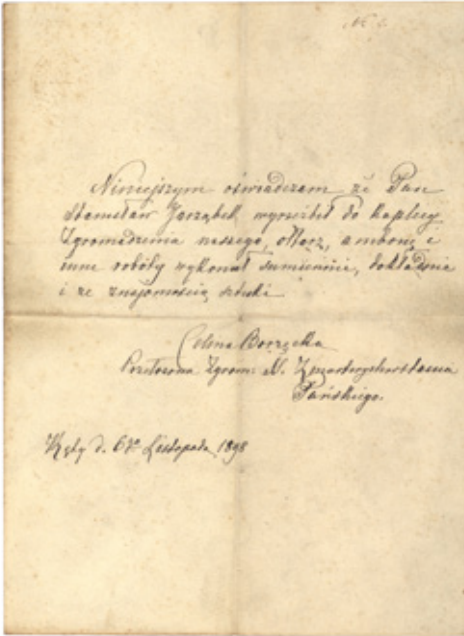 Niniejszym oświadczam że Pan
Stanisław Jarząbek wyrzeźbił do kaplicy
Zgromadzenia naszego, ołtarz, ambonę i
inne roboty wykonał sumiennie, dokładnie
i ze znajomością sztuki.
Celina Borzęcka
Przełożona Zgrom: Zmartwychwstania
Pańskiego.
Kęty d. 6go Listopada 1898